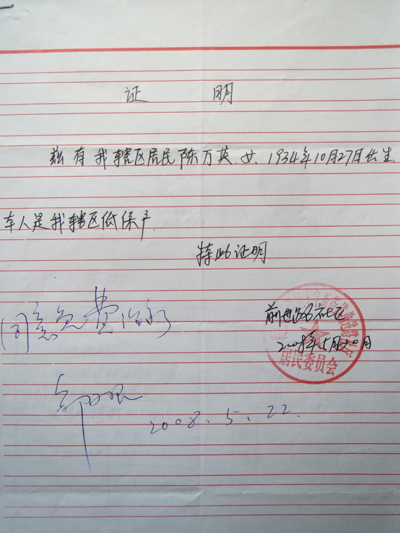 证 明
兹有我辖区居民陈万英 女、1934年10月27日出生、
本人是我辖区低保户
特此证明
同意免费治疗
社区
2008年5月20日
居民委员会
2008.5.22